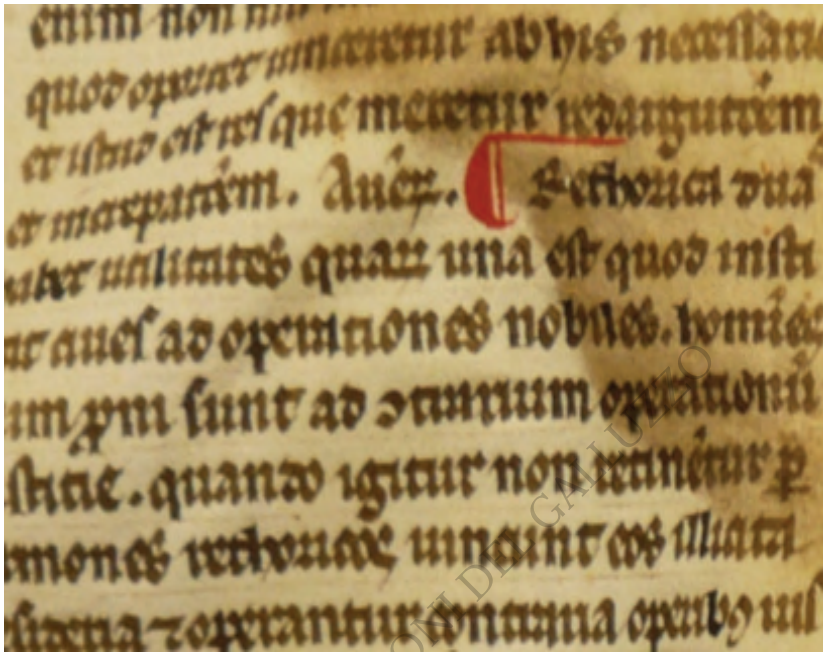 enim non
quod oportet uinceretur ab hys necessari
et istud est res que meretur redargutiem
et increpatiem. Auer. Rethorica dua
abet utilitates quarꝝ una est quod insti
at ciues ad operationes nobiles. homies
im ꝓni sunt ad ↄtrarium operationū
stitie. quando igitur non retinétur ꝑ
rmones rethoricos uincunt eos illicita
sideria ⁊ operantur contraria operibꝯ uis
ONI DEL GALLUZZO